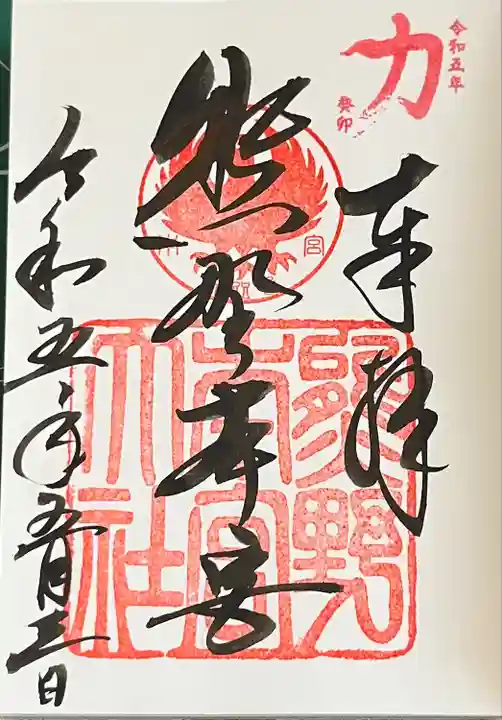 令和五年
癸卯
力
奉拝
熊野本宮
熊野
本宮
大社
宮
令和五年五月三日